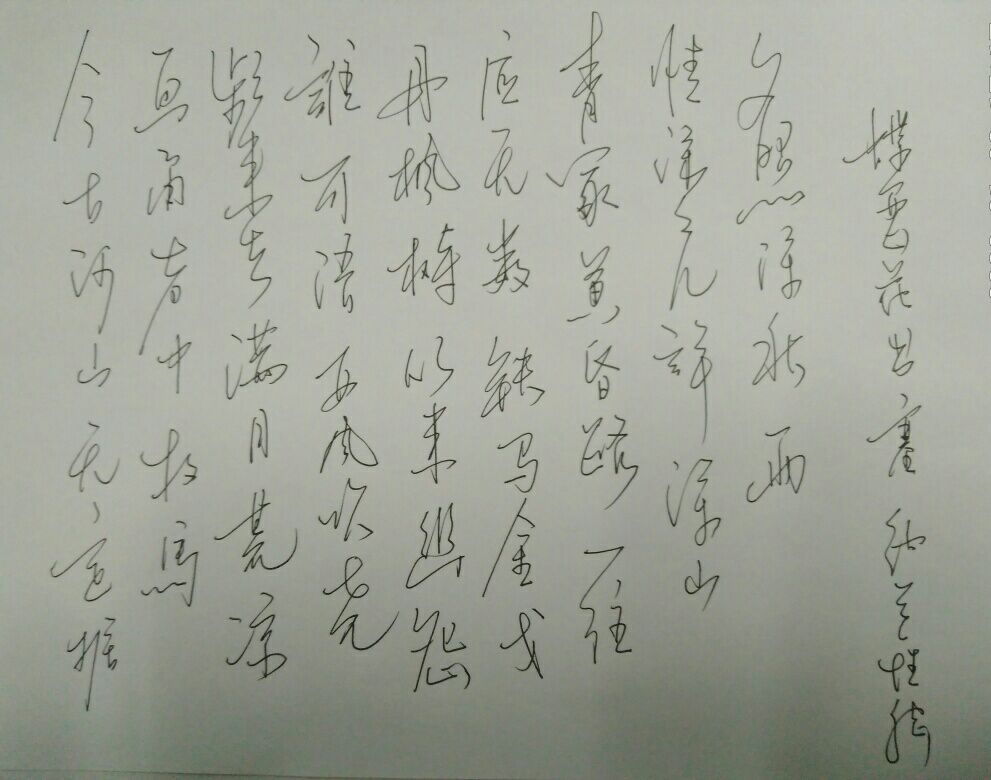 今古河山无定据
画角声中牧馬
频来去满目荒凉
誰可语西风吹老
丹枫树从来幽怨
应无数铁马金戈
青冢黄昏路一往
情深深几许深山
夕照深秋雨
蝶恋花出塞 纳兰性德